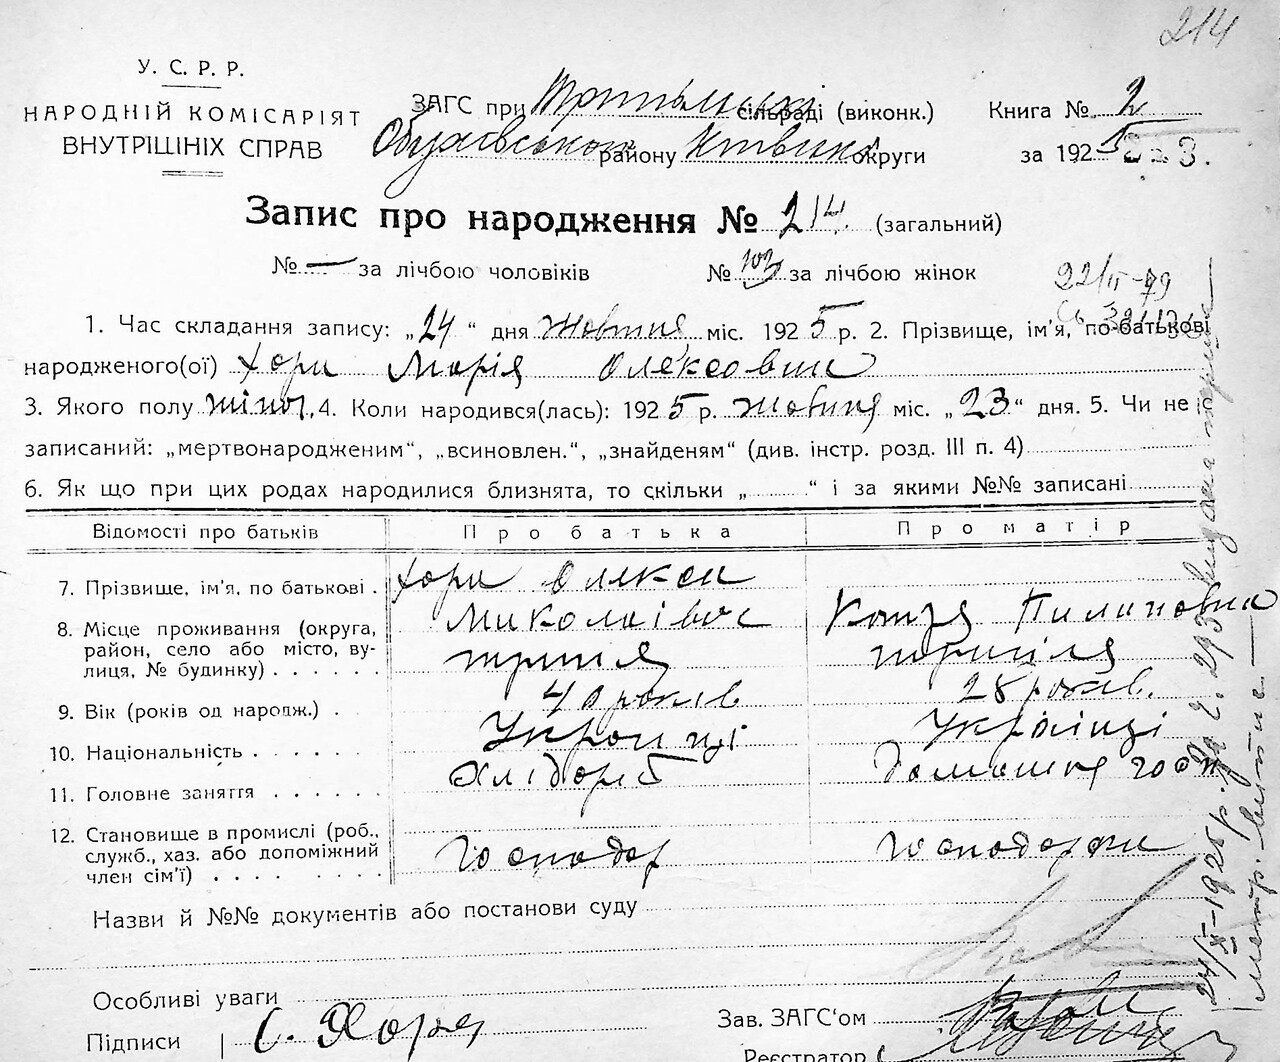 214
У. С. Р. Р.
НАРОДНІЙ КОМІСАРІЯТ
ВНУТРІШНІХ СПРАВ
ЗАГС при сільраді (виконк.)
Обухівського району округи
Книга № 2
за 1925
Запис про народження № 214. (загальний)
№ — за лічбою чоловіків № 103 за лічбою жінок
1. Час складання запису: „24“ дня Жовтня міс. 1925 р. 2. Прізвище, ім'я, по-батькові
народженого(ої) Хори Марія Олексовни
3. Якого полу жіноч. 4. Коли народився(лась): 1925 р. Жовтня міс. „23“ дня. 5. Чи не
записаний: „мертвонародженим“, „всиновлен.“, „знайденям“ (див. інстр. розд. III п. 4)
6. Як що при цих родах народилися близнята, то скільки „ “ і за якими №№ записані
Відомості про батьків Про батька Про матір
7. Прізвище, ім'я, по батькові . Хори Олекса
Миколаівич Пилиповна
8. Місце проживання (округа,
район, село або місто, ву-
лиця, № будинку) . . . . . .
трипіля трипіля
9. Вік (років од народж.) . 40 років 28 років.
10. Національність . . . . . Українці Українці
11. Головне заняття . . . . . . Хлібороб Домашня госп
12. Становище в промислі (роб.,
служб., хаз. або допоміжний
член сім'ї) . . . . . . .
Господар Господарки
Назви й №№ документів або постанови суду
Особливі уваги
Підписи
Зав. ЗАГС'ом
Реєстратор